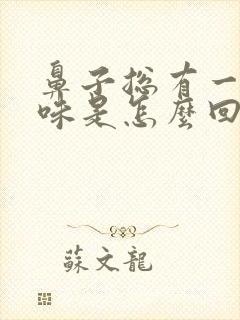 鼻子總有一
味是怎麼回
蘇文龍